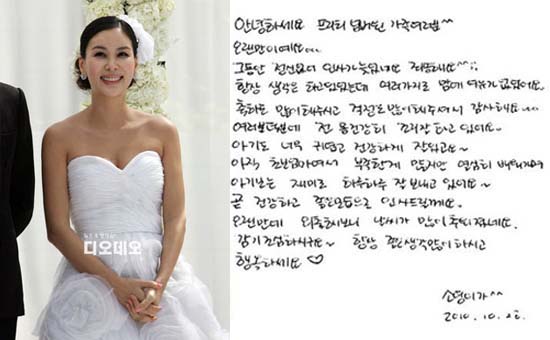 디오데오
안녕하세요 프리티 넘버원 가족여러분^^
오랜만이에요...
그동안 전선없이 인사가늦었네요 죄송해요^^;
항상 생각은 하고있었는데 여러가지로 맘에 여유가 없었어요..
축하도 많이해주시고 걱정도많이해주셔서 감사해요...
여러분덕분에 전 몸건강히 잘하고 있어요~
아기도 너무 귀엽고 건강하게 잘크고~
아직 초보엄마여서 부족한게 많지만 열심히 배워가며
아기보는 재미로 하루하루 잘 보내고 있어요~
곧 건강하고 좋은모습으로 인사드릴게요~
오랜만에 외출해보니 날씨가 많이 추워졌네요
감기 조심하시구요~ 항상 좋은생각많이 하시고
행복하세요♡
소영이가^^
2010. 10. 26.